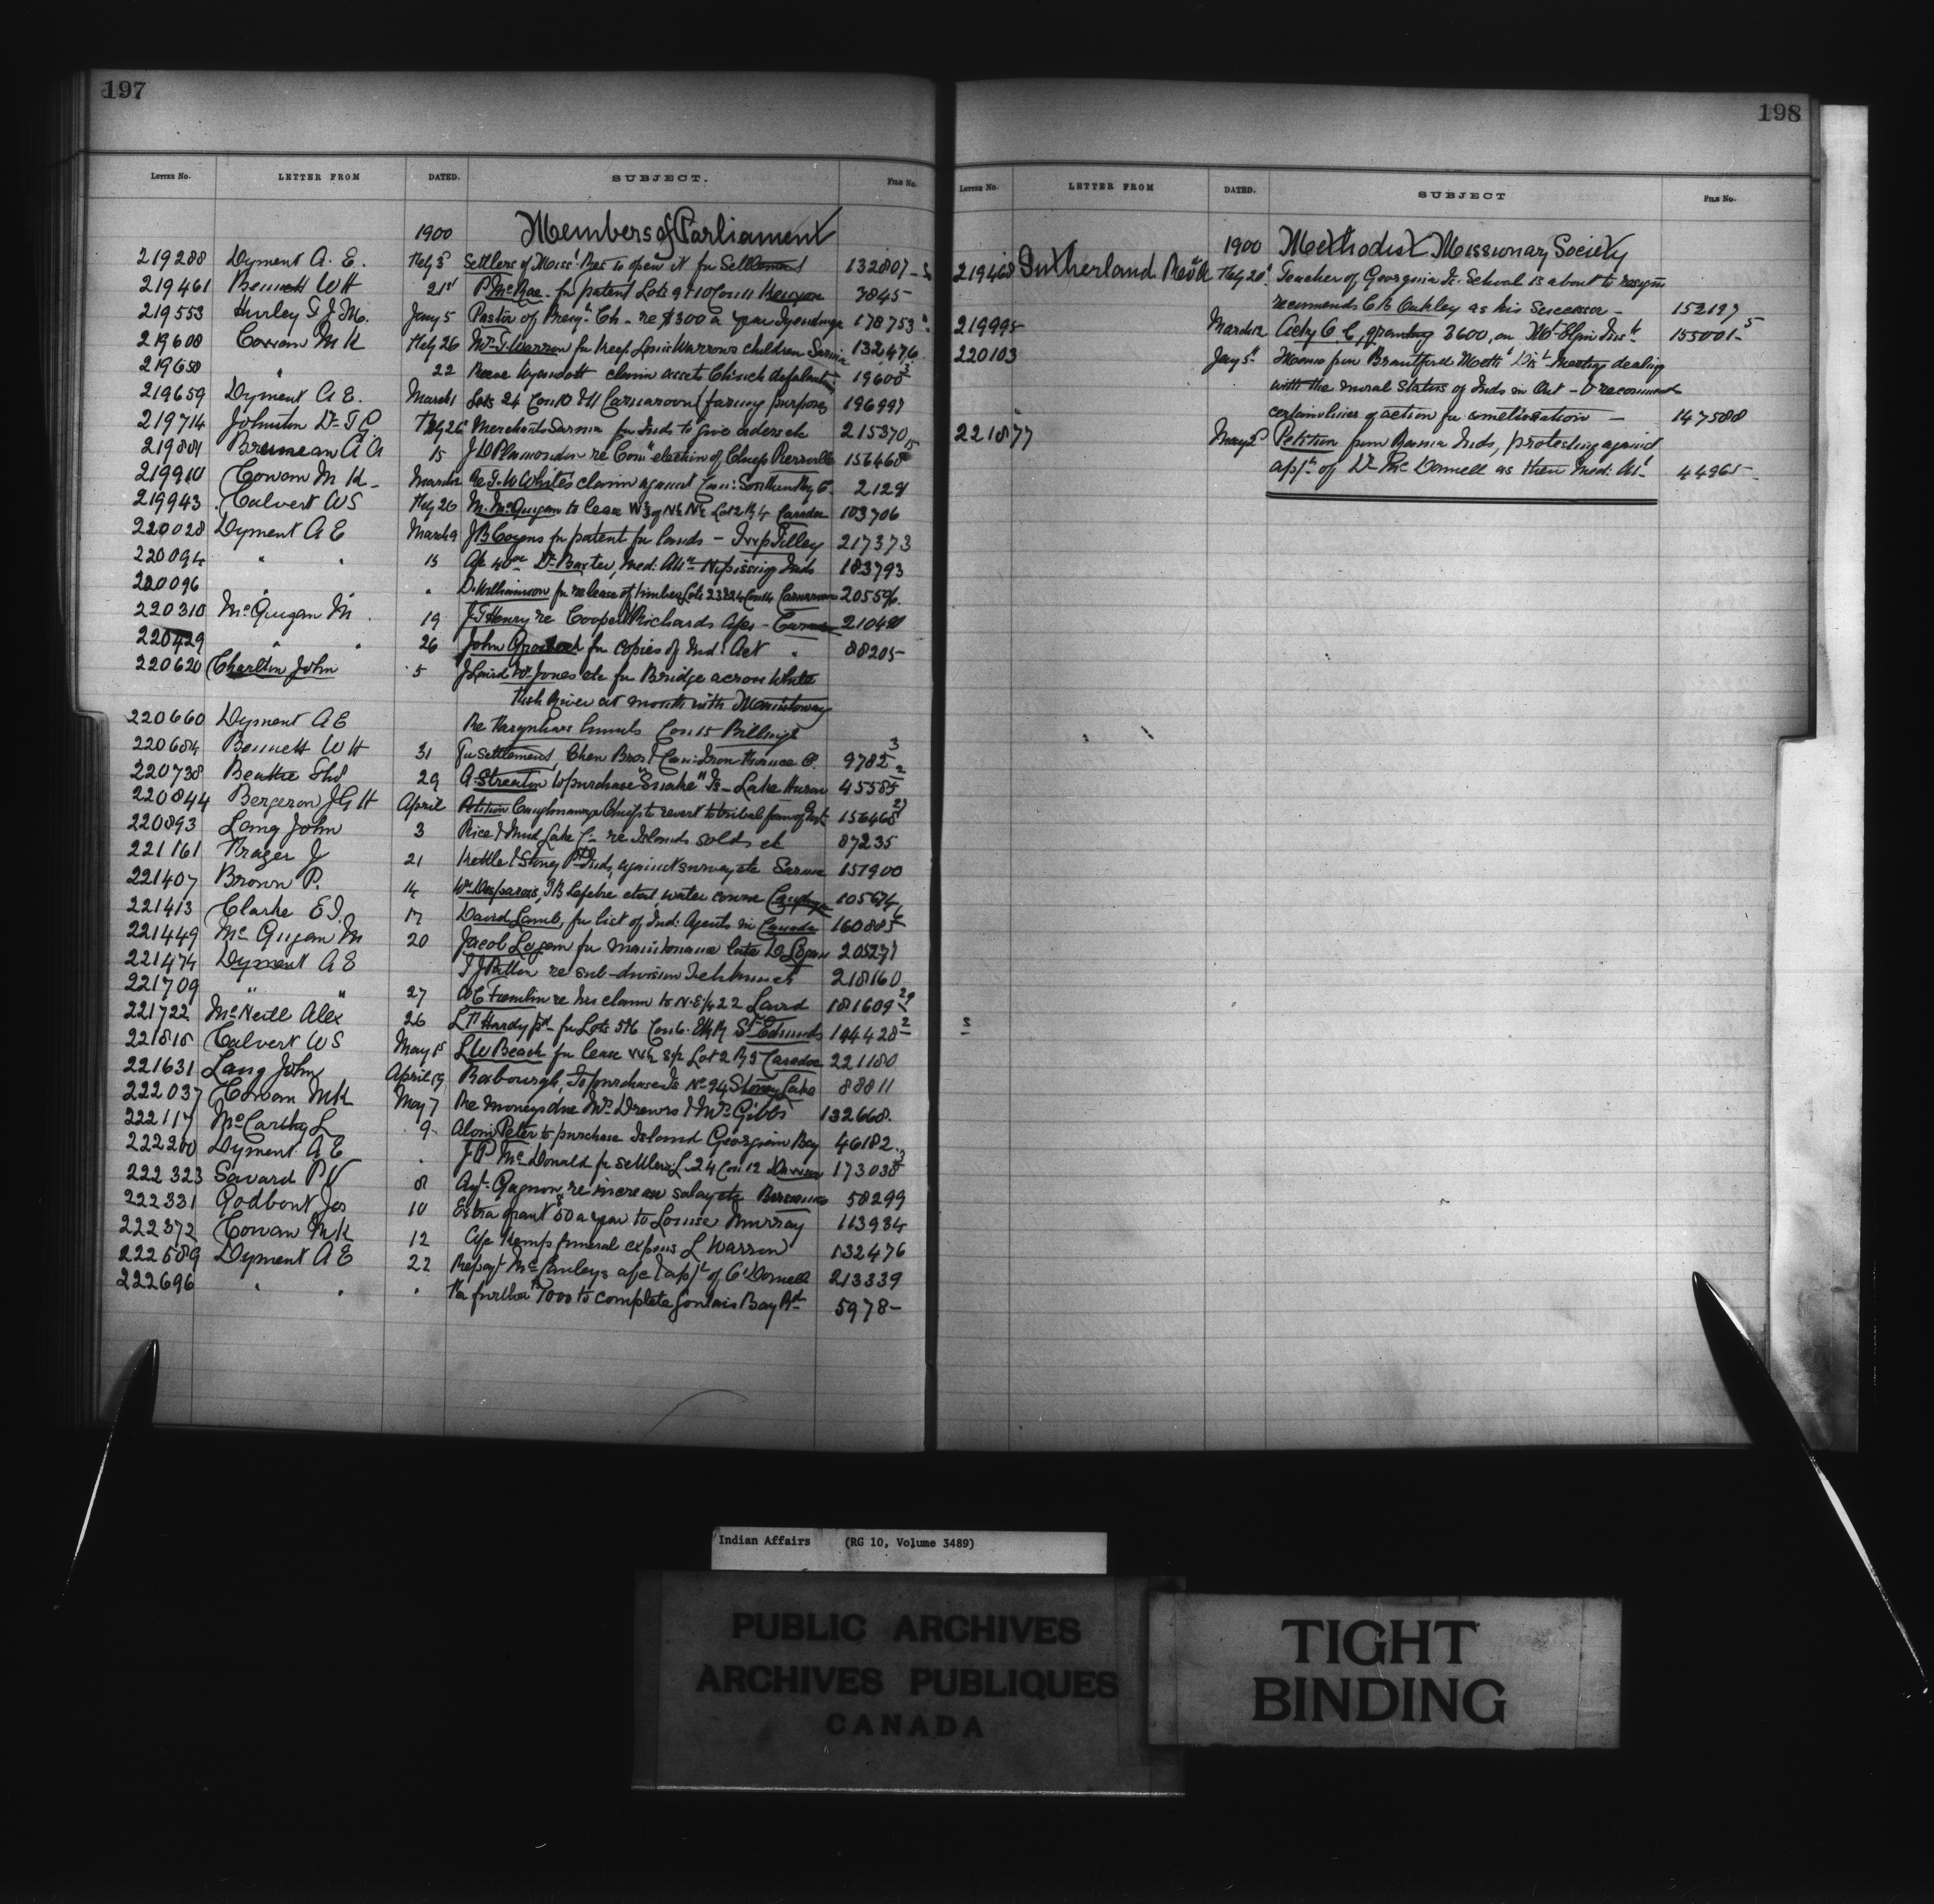 197
LETTER No. LETTER FROM DATED. SUBJECT. FILE No.
1900 Members of Parliament
219288 Dyment A. E. Feby 3 Settlers of Miss: Res to open it for Settlement 132807
219461 Bennett WH 21st P. McRae for patent Lots 9 & 10 Con 11 Kenyon 3845
219553 Hurley T J M. Jany 5 Pastor of Presy. Ch - re $300 a year Tyendinaga 178753
219608 Cowan M K Feby 26 Mrs. T. Warren for keep Louis Warrows children Sarnia 132476
219650 " 22 Reeve Wyandott claim assets Chinch defalcation 19600
219659 Dyment A E. March 1 Lots 24 Con 10 & 11 Carnarvon (farming purposes 196997
219714 Johnston Dr T G Feby 26 Merchants Sarnia for Inds to give orders etc 215370
219801 A A 15 J D Plamondon re Com election of Chiefs Pierreville 156468
219910 Cowan M K March Re T. W White's claim against Can: Southern Ry Co. 2129
219943 Calvert WS Feby 26 M. McGugan to lease W½ of N½ N½ Lot 2 R 4 Caradoc 103706
220028 Dyment A E March 9 J B Cozens for patent for lands - Twp Tilley 217373
220094 " " 15 Afc 40.00 Dr. Baxter, Med: Att. Nipissing Inds 183793
220096 " " D. Williamson for release of timber Lots 23 & 24 Con 4 Carnarvon 205596.
220310 McGugan M. 19 J T Henry re Cooper & Richards afcs -
220429 " " 26 John for copies of Ind: Act " 88205
220620 Charlton John 5 J Laird Wm Jones etc for Bridge across White
Fish River at mouth with Manitoway
220660 Dyment A E Re Con 15 Billings
220684 Bennett W H 31 For settlement, Chew Bros & Can: Iron Furnace Co. 9782 3
220738 Beattie 29 A Streaton to purchase "Snake" Is - Lake Huron 45585 2
220844 Bergeron J G H April Petition Caughnawaga Chiefs to revert to tribal form of Govt. 156468
220893 Lang John 3 Rice & Mud Lake re Islands sold etc 87235
221161 Frazer J 21 Kettle & Stony Pt Inds, against survey etc Sarnia 151900
221407 Brown P. 14 Wm Desparois, J B Lefebre et al, water course 105674
221413 Clarke E I. 17 David Lamb, for list of Ind: Agents in Canada 160885
221449 McGugan M 20 Jacob Logan for maintenance late D Logan 205271
221474 Dyment A E T J Patten re sub-division Tehkummah 218160
221709 " " 27 W E re his claim to N.E ¼ 22 Laird 181609 29
221722 McNeill Alex 26 L T Hardy pd for Lots 5 & 6 Con 6. St Edmunds 144428 2
221818 Calvert WS May 15 L W Beach for lease W½ S½ Lot 2 R 5 Caradoc 221180
221631 Lang John April 19 Roxbourgh, To purchase Is No 94 Stoney Lake 88811
222037 Cowan MK May 7 Re moneys due Mrs. Drewrs & Mrs Gibbs 132668.
222117 McCarthy L 9 Peter to purchase Island Georgian Bay 46182
222200 Dyment A E " J P McDonald for settlers L. 24 Con 12 173038 3
222323 Savard P V 8 Agt. Gagnon, re increase salary etc Bersimis 58299
222331 Godbout Jos 10 Extra grant $50 a year to Louise Murray 113934
222372 Cowan MK 12 Afc Kemp funeral expens L Warren 132476
222589 Dyment A E 22 Re payt McCauleys afc & apt of O'Donnell 213339
222696 " " " For further $7000 to complete Goulais Bay Rd. 5978
198
LETTER No. LETTER FROM DATED. SUBJECT FILE No.
1900 Methodist Missionary Society
219468 Sutherland Revd A Feby 20 Teacher of Georgina Is. School is about to resign
recommends C B Oakley as his Successor - 152197
219995 March 12 Acty O C, granting 3600, on Mot Elgin Inst. 155001 5
220103 Jany 5 Memo from Brantford Meth Dist. Meeting dealing
with the moral status of Inds in Ont - & recommends
certain lines of action for amelioration - 147588
221877 May 2 Petition from Rama Inds, protesting against
apt. of Dr. McDonnell as their Med: Att 44965
Indian Affairs (RG 10, Volume 3489)
PUBLIC ARCHIVES
ARCHIVES PUBLIQUES
CANADA
TIGHT
BINDING